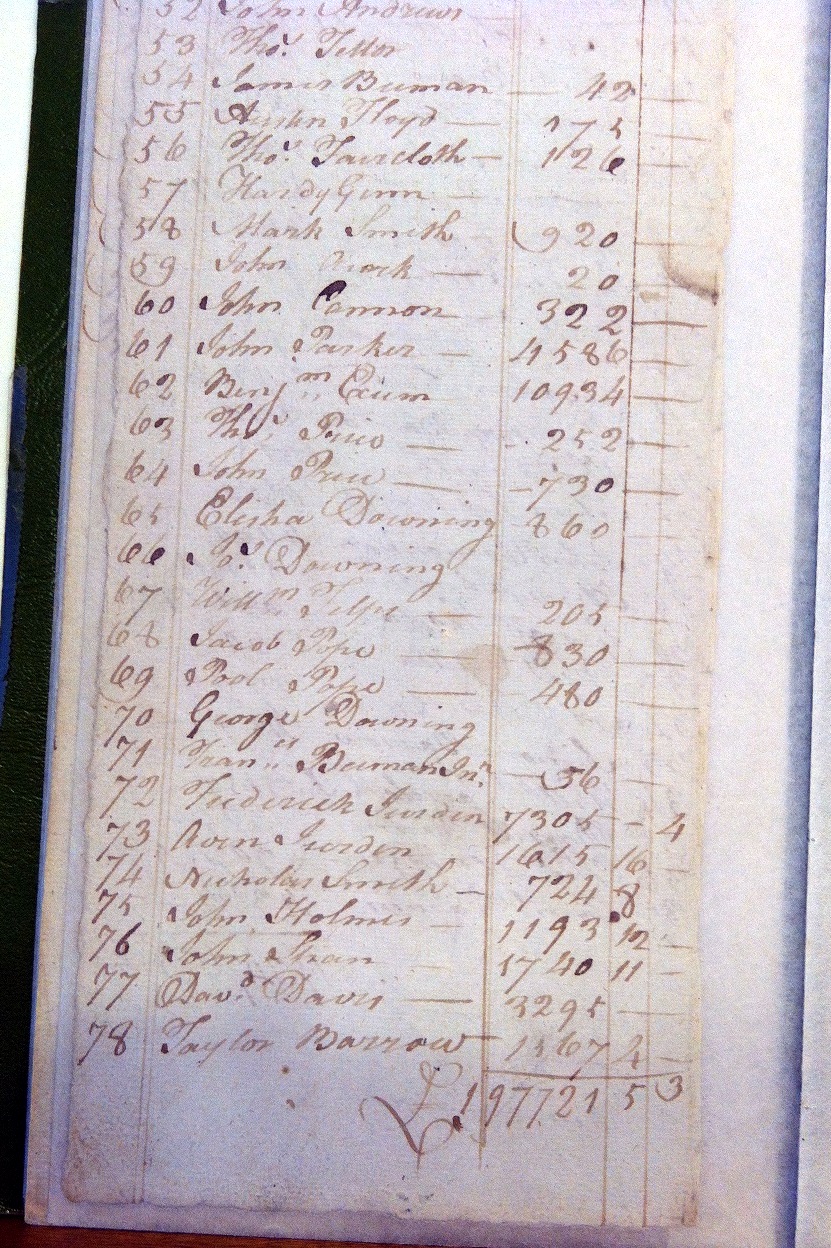 52 John Andrews —
53 Thos. Tiller
54 James Buman — 42 —
55 Austin Floyd — 175 —
56 Thos. Faircloth — 126 —
57 Hardy Ginn —
58 Mark Smith 920 —
59 John — 20 —
60 John Cannon — 322 —
61 John Parker — 4586 —
62 Benjm. Exum 10934 —
63 Thos. Price — 252 —
64 John Price — 730 —
65 Elisha Downing 860
66 Jos. Downing
67 Willm. — 205 —
68 Jacob Pope — 830 —
69 Pool Pope — 480 —
70 George Downing
71 Frans. Buman Jnr. — 56 —
72 Frederick Jurden 7305 - 4
73 Aven Jurden 1615 16 -
74 Nicholas Smith — 724 8
75 John Holmes — 1193 12 -
76 John 1740 11 -
77 Davd. Davis — 3295 —
78 Taylor Barrow 1567 4 -
£ 197721 5 3